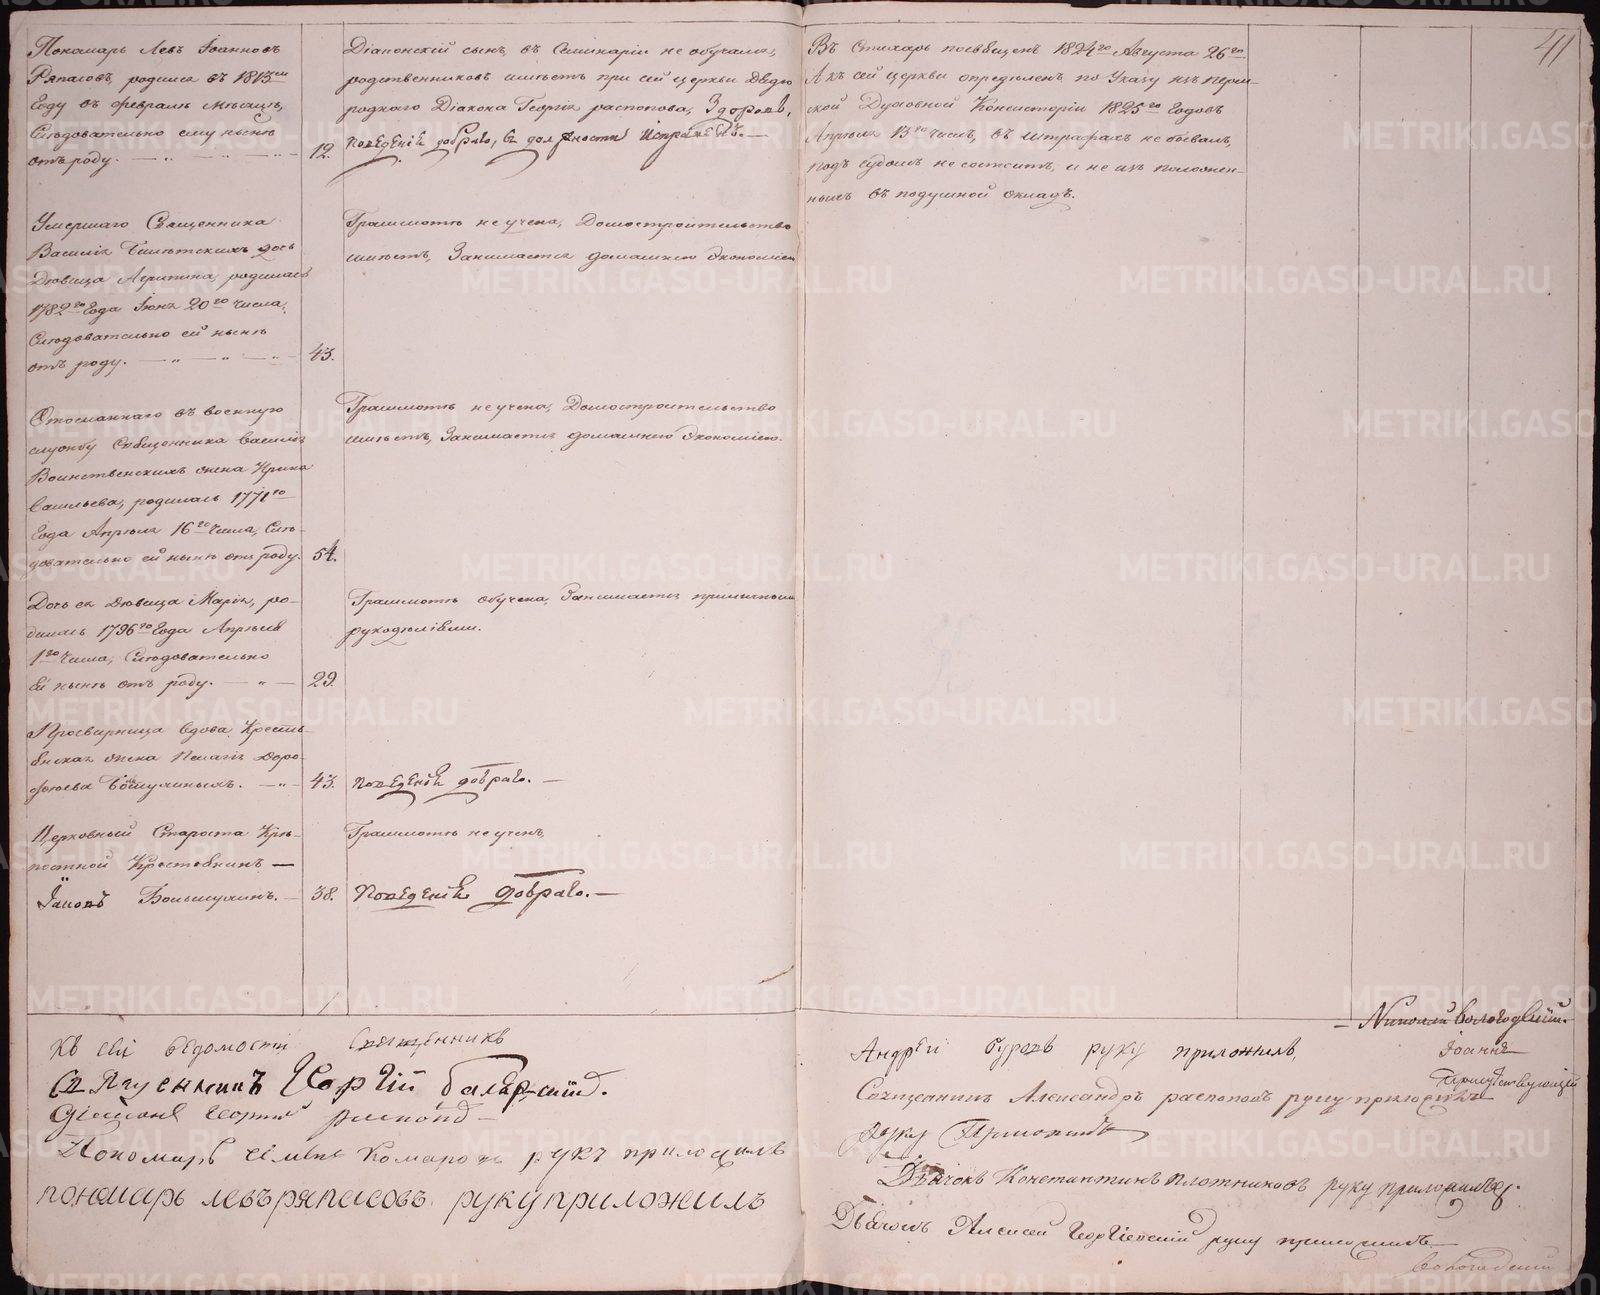 41
Пономарь Левъ Іоанновъ
Ряпасовъ, родился въ 1813мъ
Году въ февралѣ мѣсяцѣ,
Слѣдовательно ему нынѣ
отъ роду. 12.
Діаконскій сынъ, въ Семинаріи не обучался,
родственниковъ имѣетъ при сей церкви Дядю
роднаго Діакона Георгія распопова, Здоровъ,
поведеніѣ добраго, въ должности исправенъ.
Въ Стихарь посвященъ 1824го Августа 26го
А къ сей церкви опредѣленъ по Указу изъ Перм-
ской Духовной Консисторіи 1825го Годовъ
Апрѣля 13го числъ, въ штрафахъ не бывалъ,
подъ судомъ не состоитъ, и не изъ положен-
ныхъ въ подушной окладъ.
Умершаго Священника
Василія дочь
Дѣвица Агрипина, родилась
1782го Года Іюня 20го числа,
Слѣдовательно ей нынѣ
отъ роду. 43.
Граммотѣ не учена, Домостроительство
имѣетъ, Занимается домашнею Экономіею
Отосланнаго въ военную
службу Священника Василія
Воинственскихъ жена Ирина
Васильева, родилась 1771го
Года Апрѣля 16го Числа, Слѣ-
довательно ей нынѣ отъ роду. 54.
Граммотѣ не учена, Домостроительство
имѣетъ, Занимается домашнею Экономіею.
Дочь ея Дѣвица Марія, ро-
дилась 1796го Года Апрѣля
1го Числа, Слѣдовательно
Ей нынѣ отъ роду. 29.
Граммотѣ обучена, Занимается приличными
рукодѣліями.
Просвирница вдова Кресть-
янская жена Пелагія Доро-
фѣева 43.
поведеніѣ добраго.
Церковный Староста Крѣ-
постной Крестьянинъ
Іаковъ Большухинъ. 38.
Граммотѣ не ученъ,
Поведеніѣ добраго.
Къ сей ведомости Священникъ
Георгій
Діаконъ Георгій
Пономарь Комаровъ руку приложилъ
пономарь левъ ряпасовъ руку приложилъ
Николай Вологодский.
Андрей буровъ руку приложилъ,
Іоаннъ
Священникъ Александръ распоповъ руку приложилъ
Присудствующий
руку Приложилъ
Дьячокъ Константинъ плотниковъ руку приложилъ
Дьячокъ Алексей Георгіевский руку приложилъ